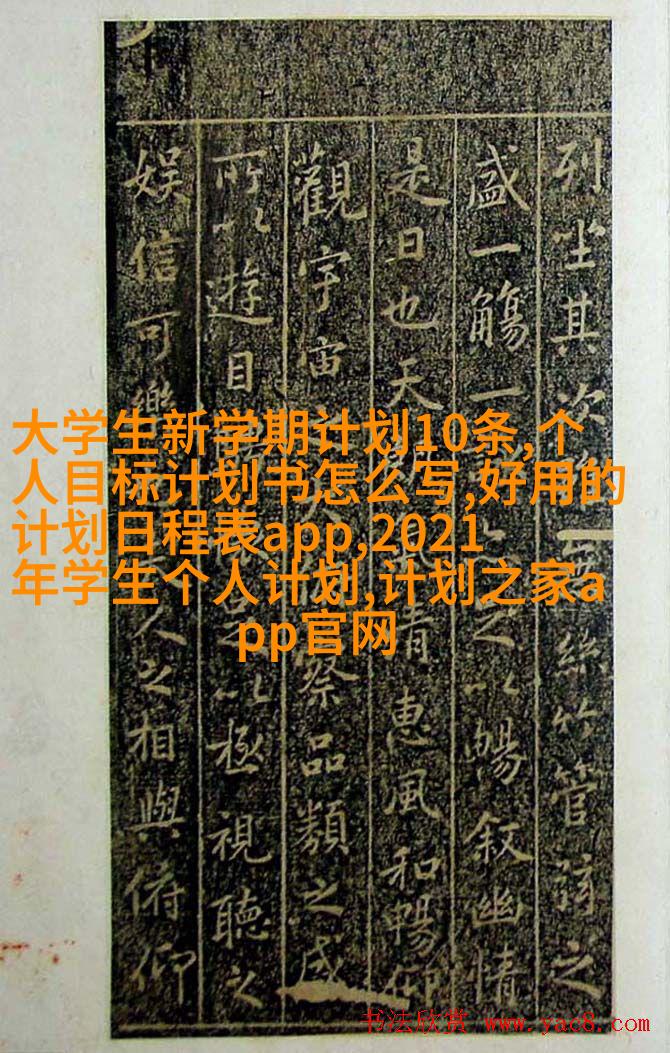 列坐其次絲竹管弦之
盛一觴一以暢叙幽情
是日也天清惠風和暢仰
觀宇宙察品類之盛
所以遊目以極視聽之
娱信可樂人之相與俯仰
大学生新学期计划10条,个
人目标计划书怎么写,好用的
计划日程表app,2021
年学生个人计划,计划之家a
pp官网
书法欣赏 www.yac8.com